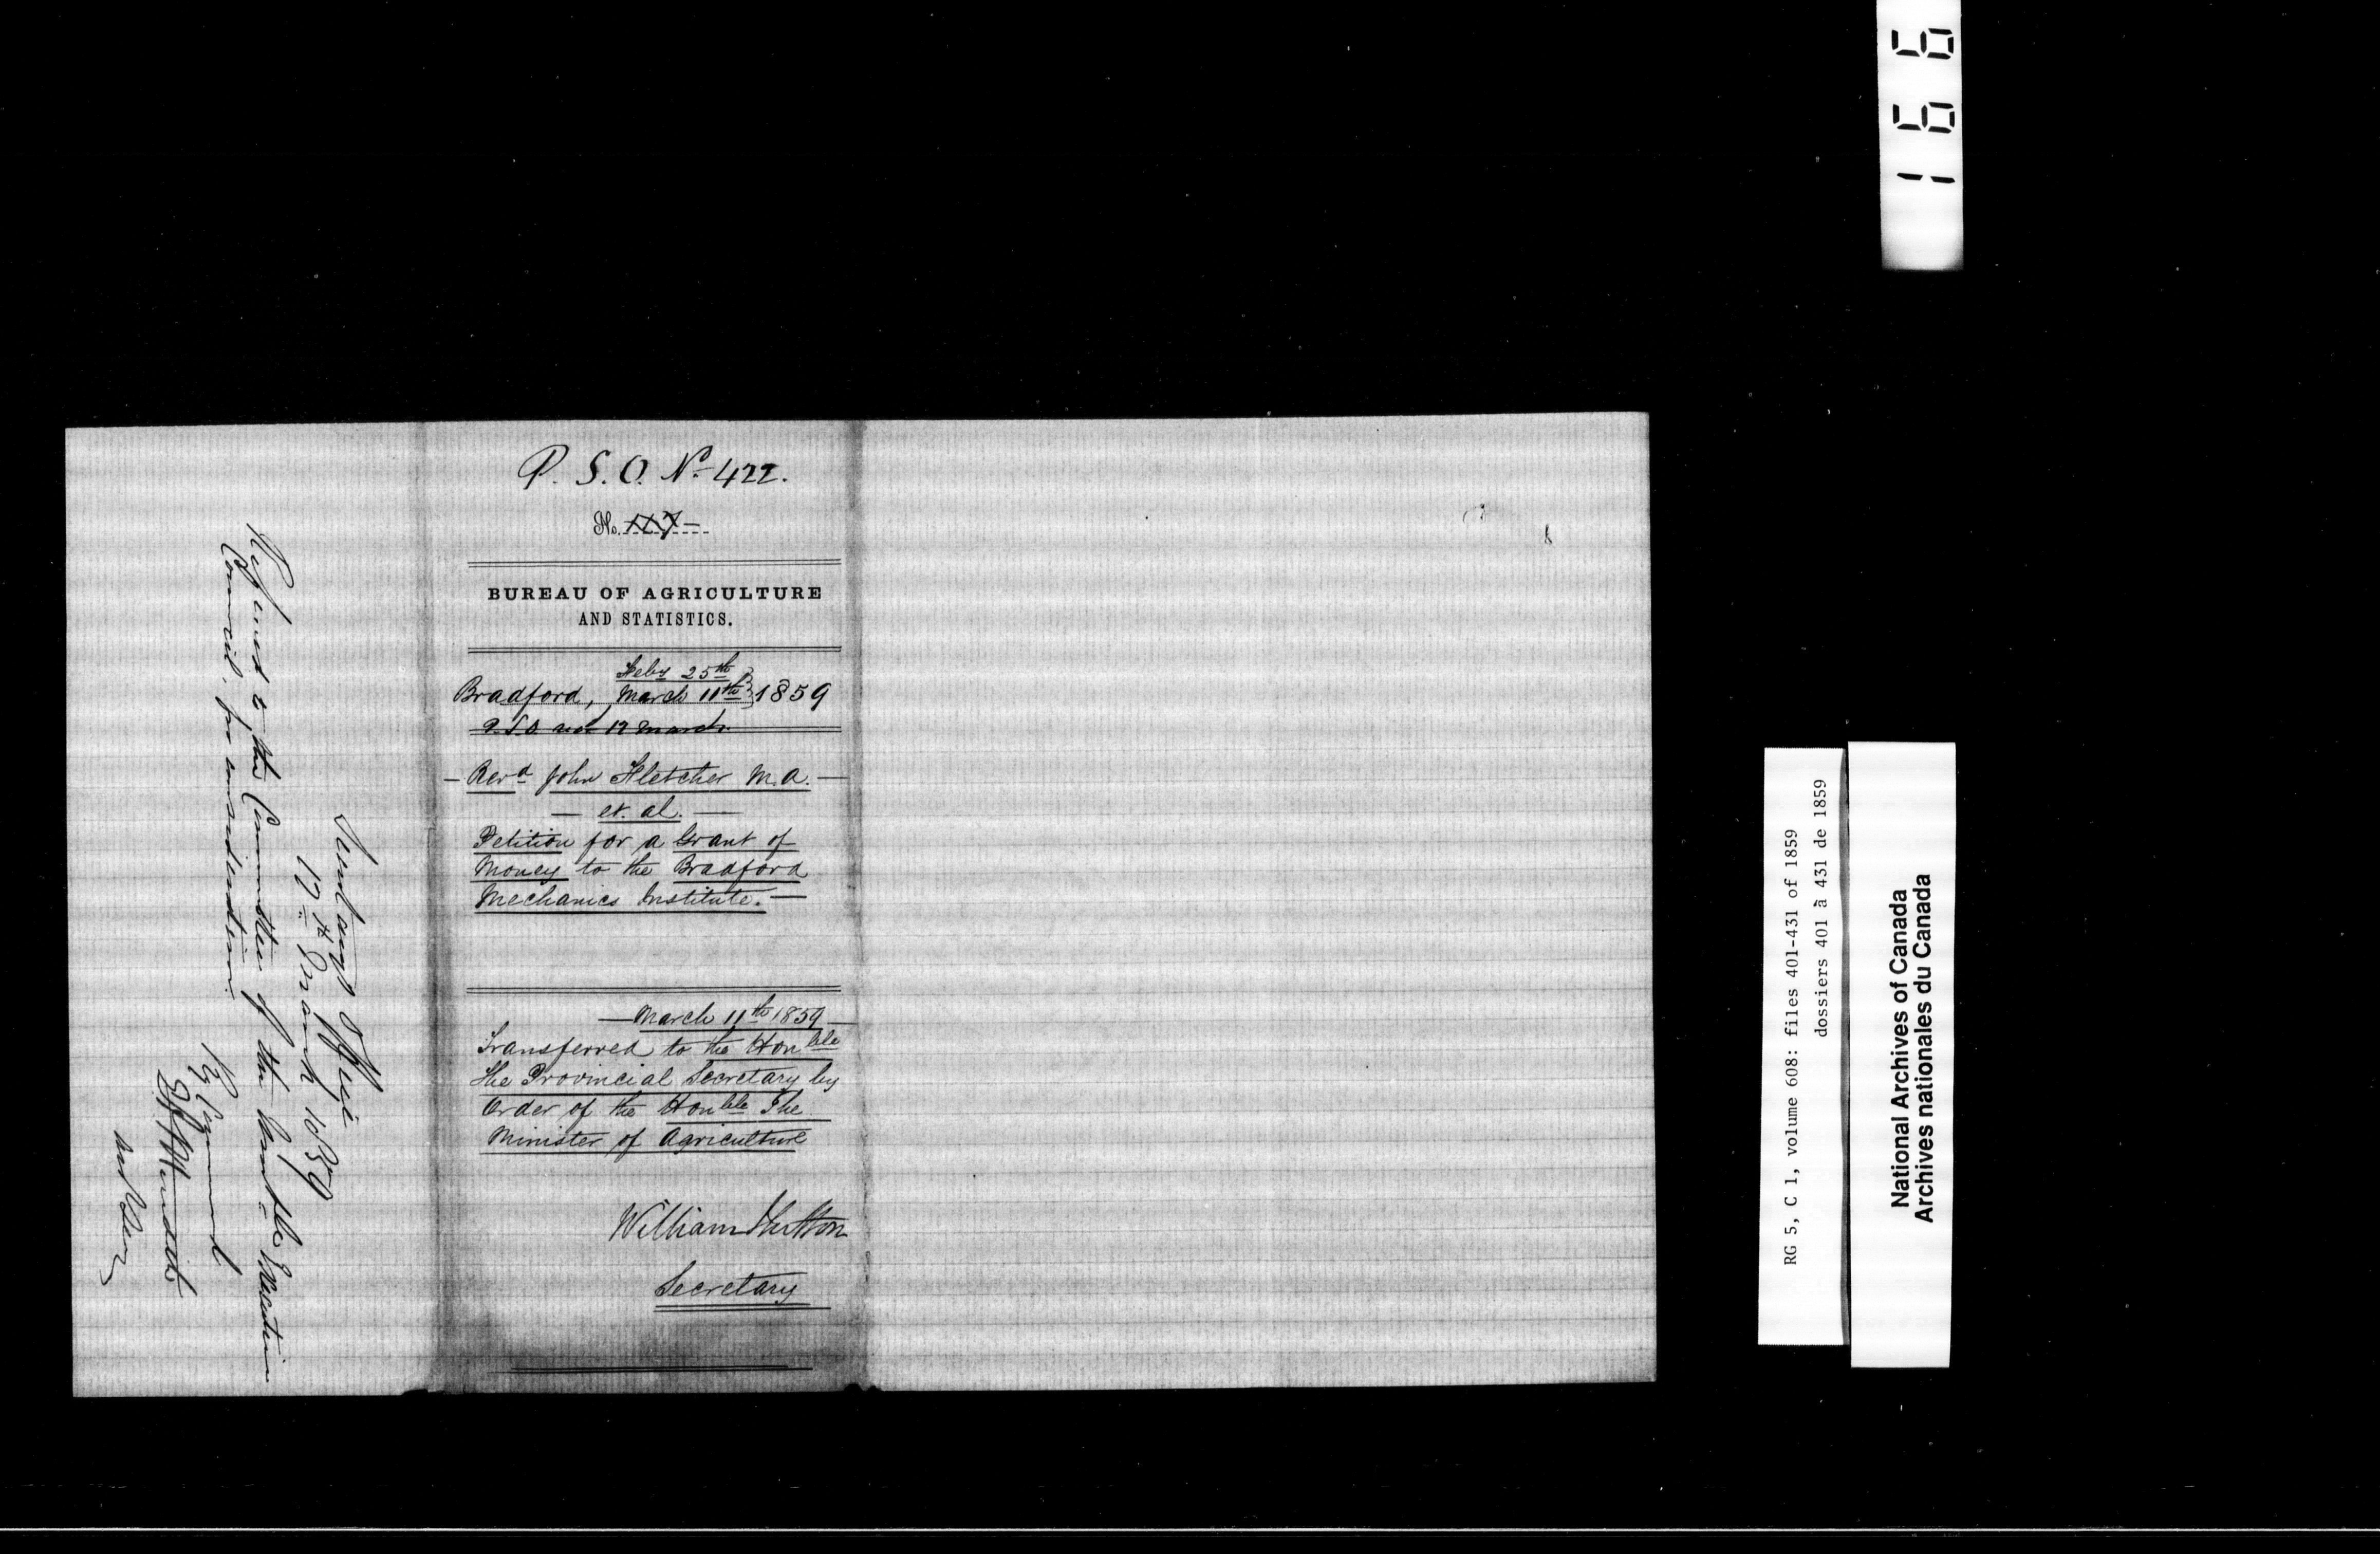 P. S. O. No. 422.
No. 117
BUREAU OF AGRICULTURE
AND STATISTICS.
Feby 25th
Bradford, March 11th } 1859
P.S.O. recd 12 March
Revd John Fletcher M.A.
et. al.
Petition for a Grant of
Money to the Bradford
Mechanics Institute.
March 11th 1859
Transferred to the Honble
the Provincial Secretary by
Order of the Honble The
Minister of Agriculture
William Hutton
Secretary
Secretary's Office
12th March 1859
Referred to the Committee of the Honble Executive
Council, for consideration.
By Command
166
RG 5, C 1, volume 608: files 401-431 of 1859
dossiers 401 à 431 de 1859
National Archives of Canada
Archives nationales du Canada